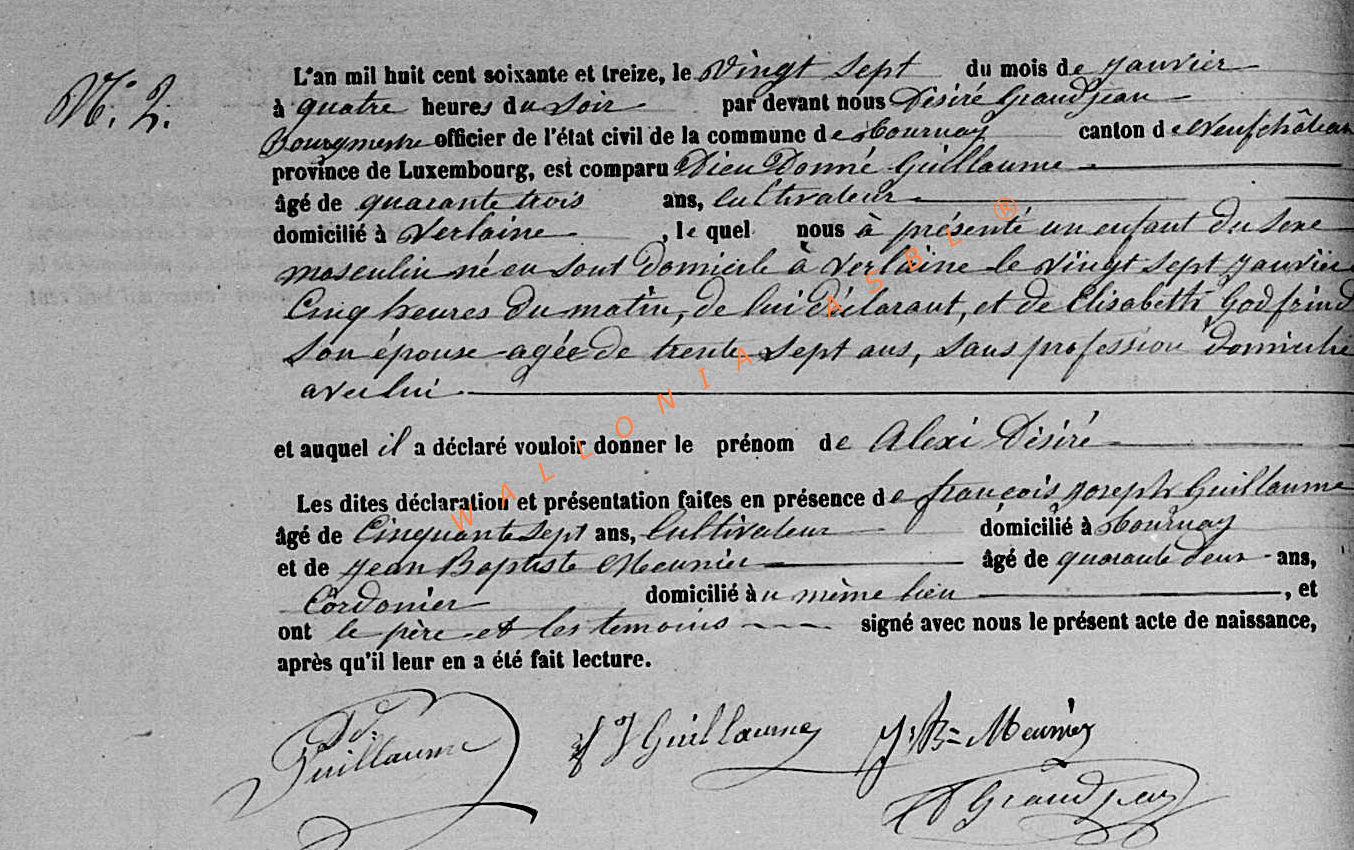 N.° 2.
L'an mil huit cent soixante et treize, le vingt sept du mois de janvier
à quatre heures du soir par devant nous Désiré Grandjean
Bourgmestre officier de l'état civil de la commune de Tournay canton de Neufchâteau
province de Luxembourg, est comparu Dieu Donné Guillaume
âgé de quarante trois ans, Cultivateur
domicilié à Verlaine, le quel nous à présenté un enfant du sexe
masculin né en sont domicile à Verlaine le vingt sept janvier
Cinq heures du matin, de lui déclarant, et de Elisabeth Godfrind
son épouse agée de trente sept ans, sans profession domicilié
avec lui
et auquel il a déclaré vouloir donner le prénom de Alexi Désiré
Les dites déclaration et présentation faites en présence de françois joseph Guillaume
âgé de Cinquante sept ans, Cultivateur domicilié à Tournay
et de jean Baptiste Meunier âgé de quarante deux ans,
Cordonier domicilié au même lieu, et
ont le père et les temoins signé avec nous le présent acte de naissance,
après qu'il leur en a été fait lecture.
D. Guillaume
f J Guillaume
J. B= Meunier
D Grandjean
WALLONIA ASBL ®